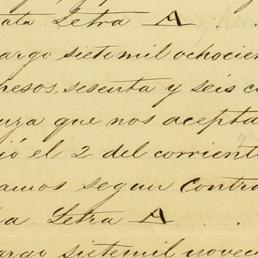 ata Letra A
argo sietemil ochocien
pesos, sesenta y seis c
nza que nos acepta
ió el 2 del corriente
amos segun contra
a Letra A
argo sietemil novec